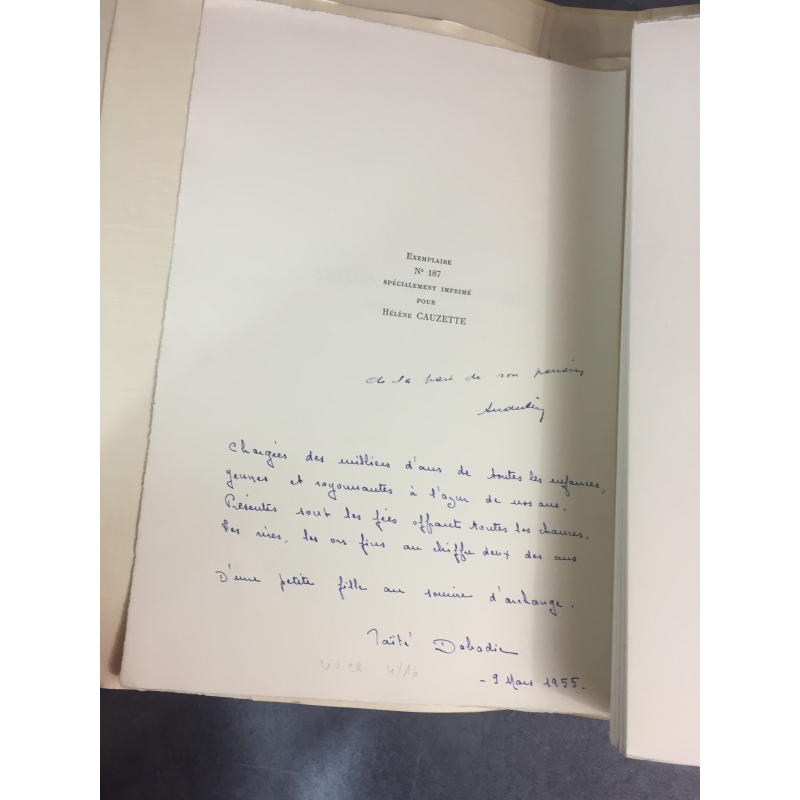 EXEMPLAIRE
Nº 187
SPÉCIALEMENT IMPRIMÉ
POUR
HÉLÈNE CAUZETTE
de la part de son parrain
Chargées des milliers d'ans de toutes les enfances,
Jeunes et rayonnantes à l'azur de nos ans,
Présentes sont les fées offrant toutes les chances.
Les rires, les ors fins au chiffre deux des ans
D'une petite fille au sourire d'archange.
Taïté Dabadie
- 9 Mars 1955.
4/16